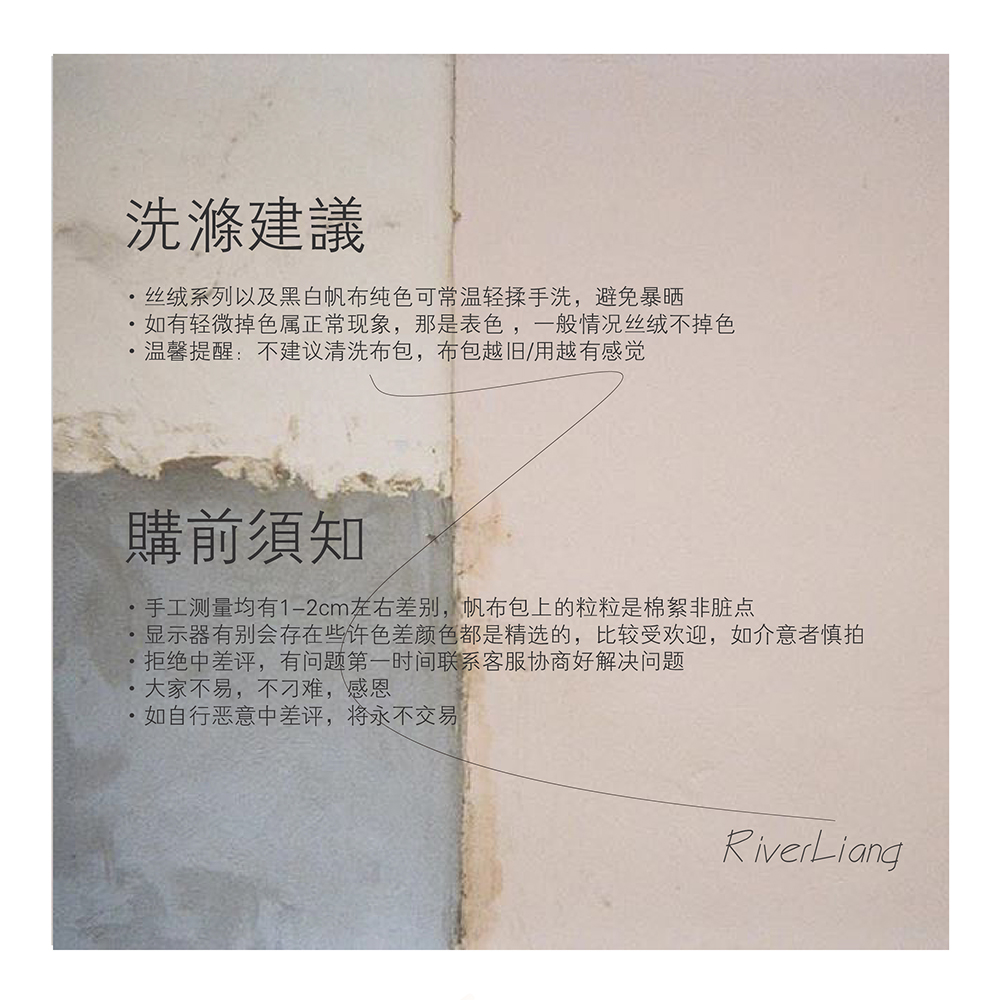 洗滌建議
・丝绒系列以及黑白帆布纯色可常温轻揉手洗，避免暴晒
・如有轻微掉色属正常现象，那是表色，一般情况丝绒不掉色
・温馨提醒：不建议清洗布包，布包越旧/用越有感觉
購前須知
・手工测量均有1-2cm左右差别，帆布包上的粒粒是棉絮非脏点
・显示器有别会存在些许色差颜色都是精选的，比较受欢迎，如介意者慎拍
・拒绝中差评，有问题第一时间联系客服协商好解决问题
・大家不易，不刁难，感恩
・如自行恶意中差评，将永不交易
RiverLiang